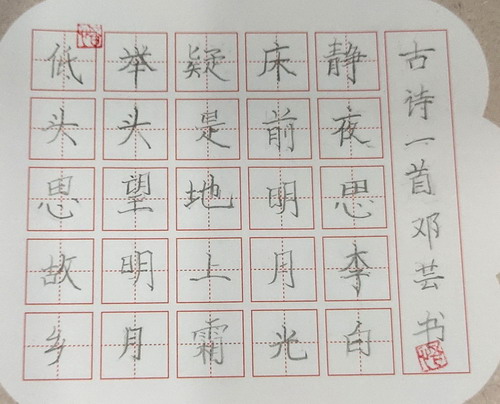 静夜思李白
床前明月光
疑是地上霜
举头望明月
低头思故乡
古诗一首邓芸书